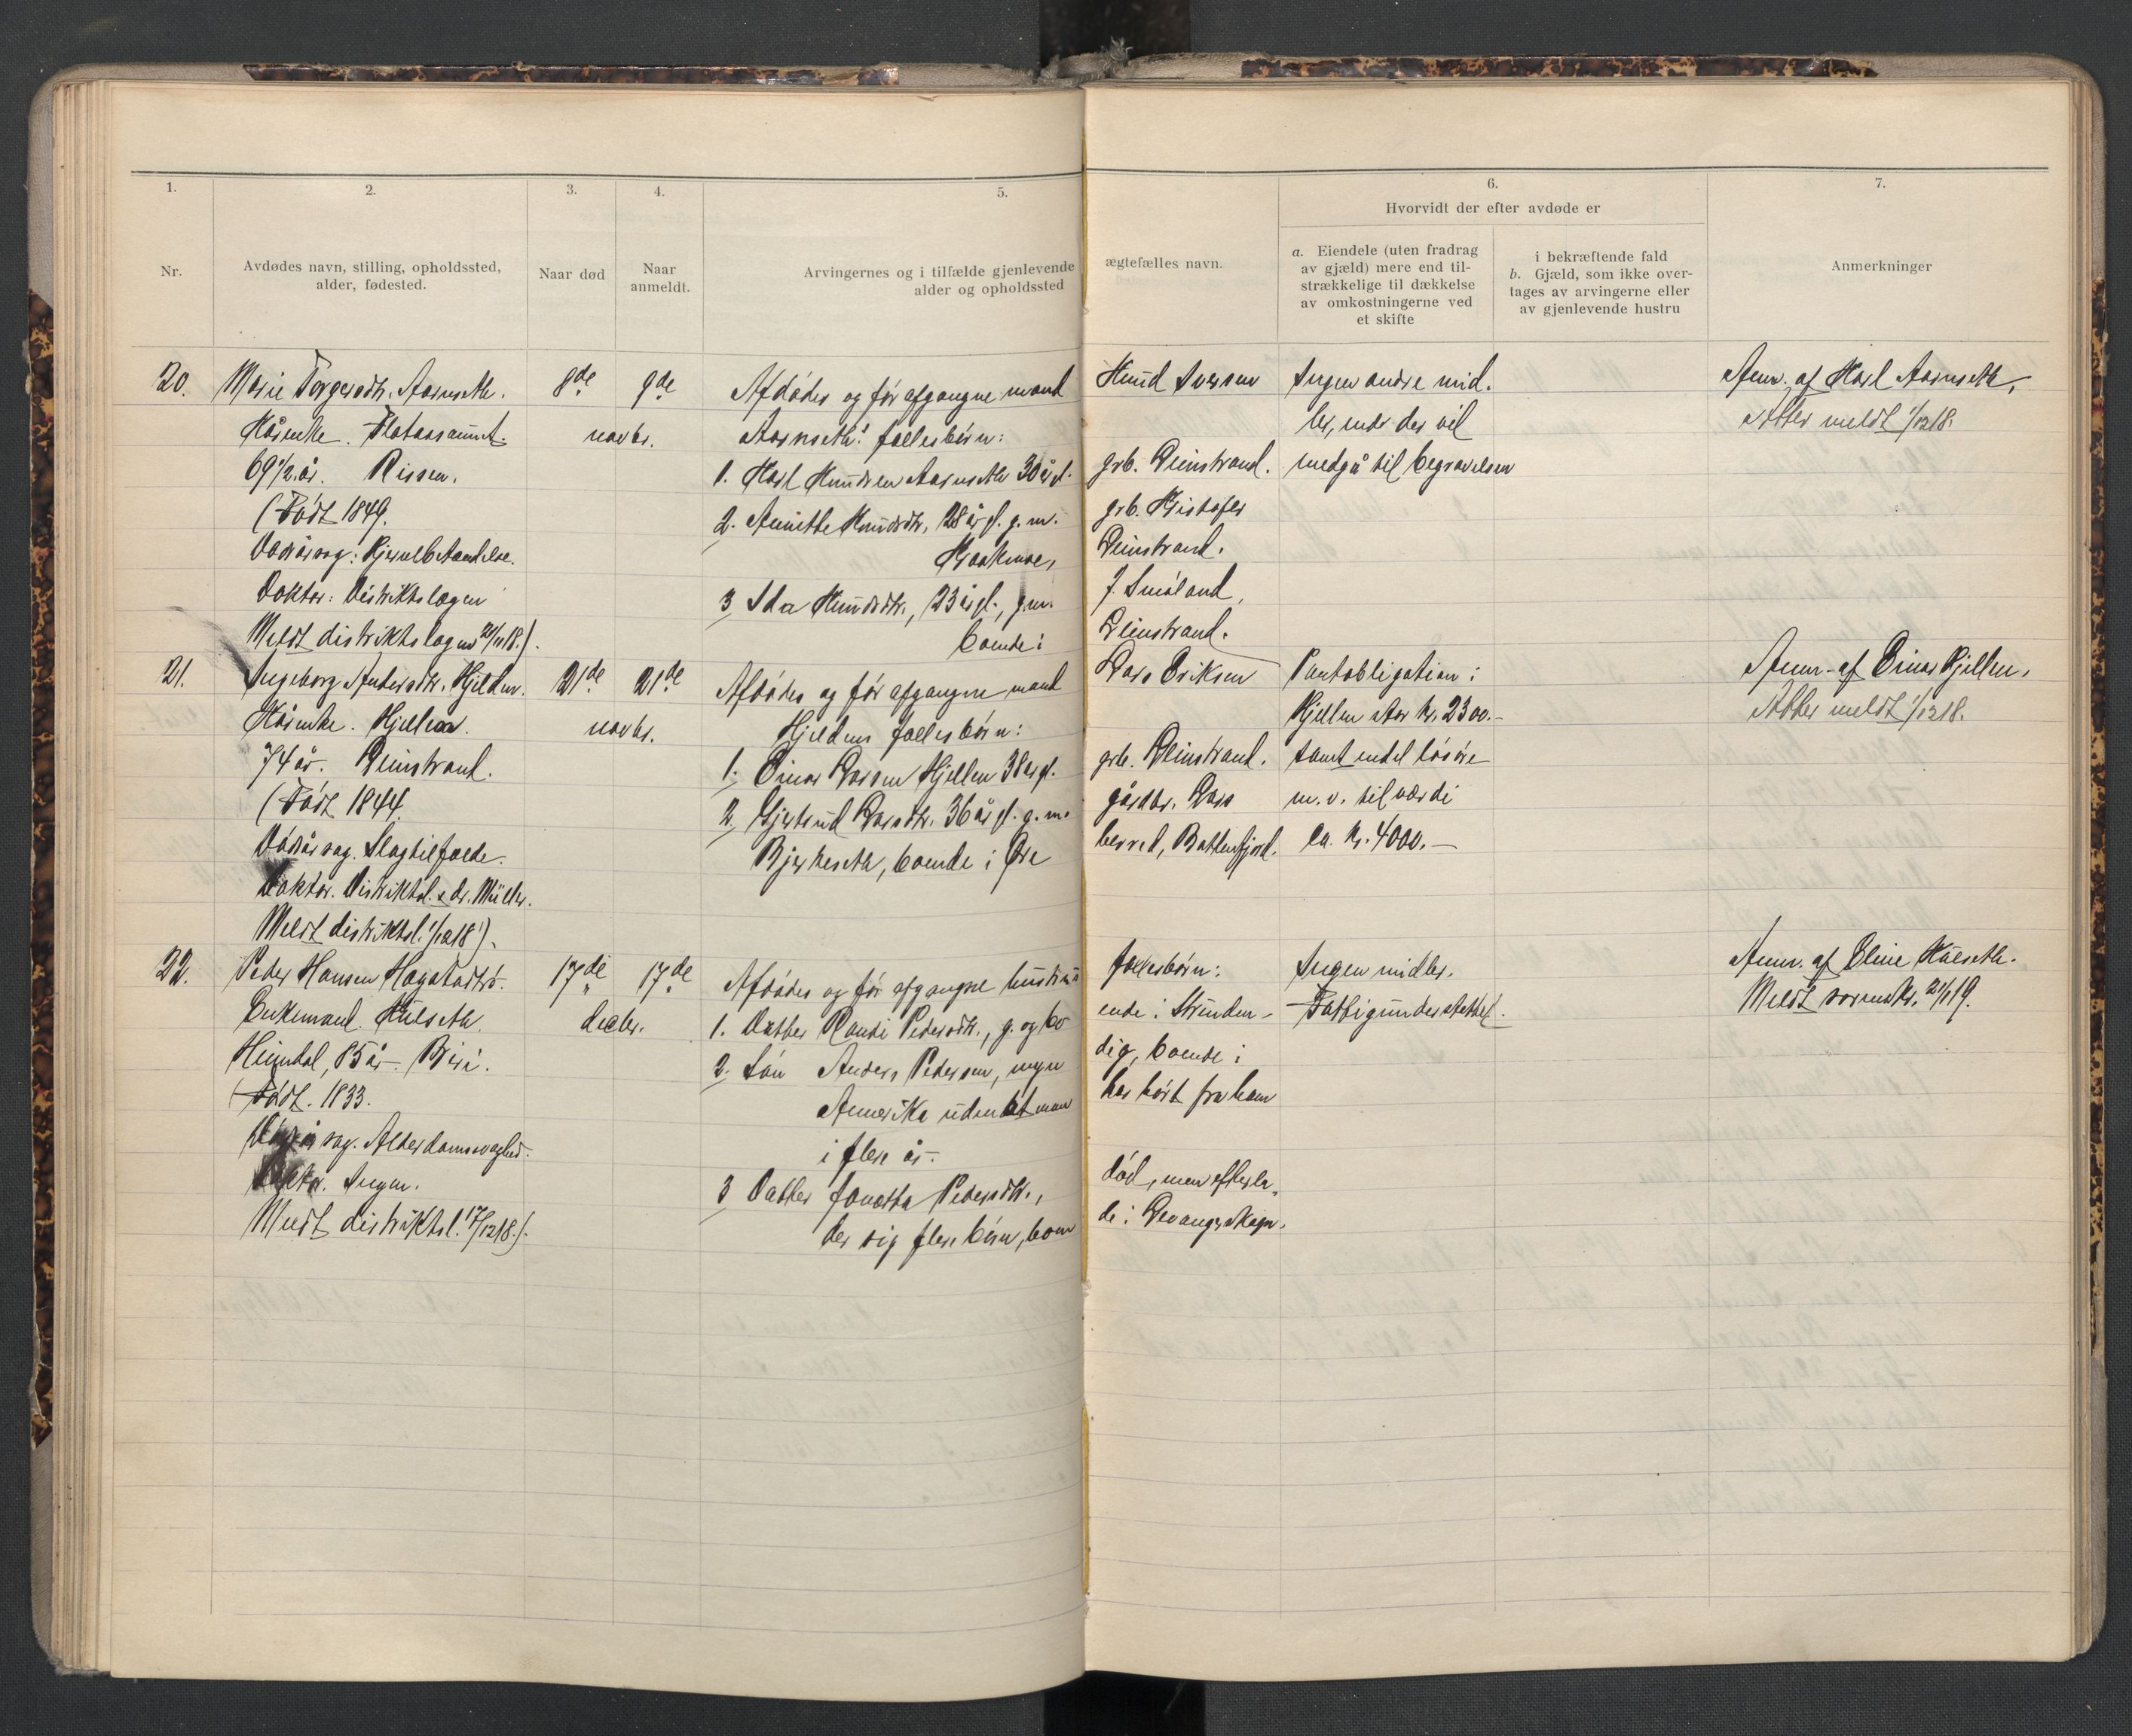 1.
2.
3.
4.
5.
6.
7.
Nr.
Avdødes navn, stilling, opholdssted,
alder, fødested.
Naar død
Naar
anmeldt.
Arvingernes og i tilfælde gjenlevende ægtefælles navn.
alder og opholdssted
Hvorvidt der efter avdøde er
a. Eiendele (uten fradrag
av gjæld) mere end til-
strækkelige til dækkelse
av omkostningerne ved
et skifte
i bekræftende fald
b. Gjæld, som ikke over-
tages av arvingerne eller
av gjenlevende hustru
Anmerkninger
20.
Marie Torgersdtr. Aarnseth.
Kårenke.
69 1/2 år. Rissen.
(Født 1849.
Dødsårsag: Hjernebetændelse.
Doktor: Distriktslægen
Meldt distriktslægen 20/11 18.).
8de
novbr.
9de
Afdødes og før afgangne mand Knud Iversen
Aarnseth's fællesbørn:
1. Karl Knudsen Aarnseth 30 år gl. grb. Leinstrand.
2. Anette Knudsdtr., 28 år gl. g.m. grb. Kristofer
Kraakmoe, Leinstrand.
3. Ida Knudsdtr., 23 år gl., g.m. J. Småland,
boende i Leinstrand.
Ingen andre mid-
ler, end der vil
medgå til begravelsen
Anm. af Karl Aarnseth.
Atter meldt 1/12 18.
21.
Ingeborg Andersdtr. Hjelden.
Kårenke. Hjellen.
74 år. Leinstrand.
(Født 1844.
Dødsårsag. Slagtilfælde.
Doktor. Distriktsl. & dr. Müller.
Meldt distriktsl. 1/12 18.).
21de
novbr.
21de
Afdødes og før afgangne mand Lars Eriksen
Hjeldens fællesbørn:
1. Einar Larsen Hjellen 38 år gl. grb. Leinstrand.
2. Gjertrud Larsdtr. 36 år gl. g.m. gårdbr. Lars
Bjerkeseth, boende i Øre herred, Battenfjord.
Pantobligation i
Hjellen stor kr. 2300.-
samt endel løsøre
m.v. til værdi
ca. kr. 4000.-
Anm. af Einar Hjellen.
Atter meldt 1/12 18.
22.
Peder Hansen
Enkemand. Hulseth.
Heimdal, 85 år. Biri.
(Født. 1833.
Dødsårsag. Alderdomssvaghed.
Doktor. Ingen.
Meldt distriktsl. 17/12 18.).
17de
decbr.
17de
Afdødes og før afgangne hustrus fællesbørn:
1. Datter Randi Pedersdtr., g. og boende i Strinden.
2. Søn Anders Pedersen, myndig, boende i
Amerika uden at man har hørt fra ham
i flere år.
3. Datter Pedersdtr., død, men efterla-
der sig flere børn, boende i Levanger Skogn.
Ingen midler.
Fattigunderstøttet.
Anm. af Oline Hulseth.
Meldt sorenskr. 2/1 19.